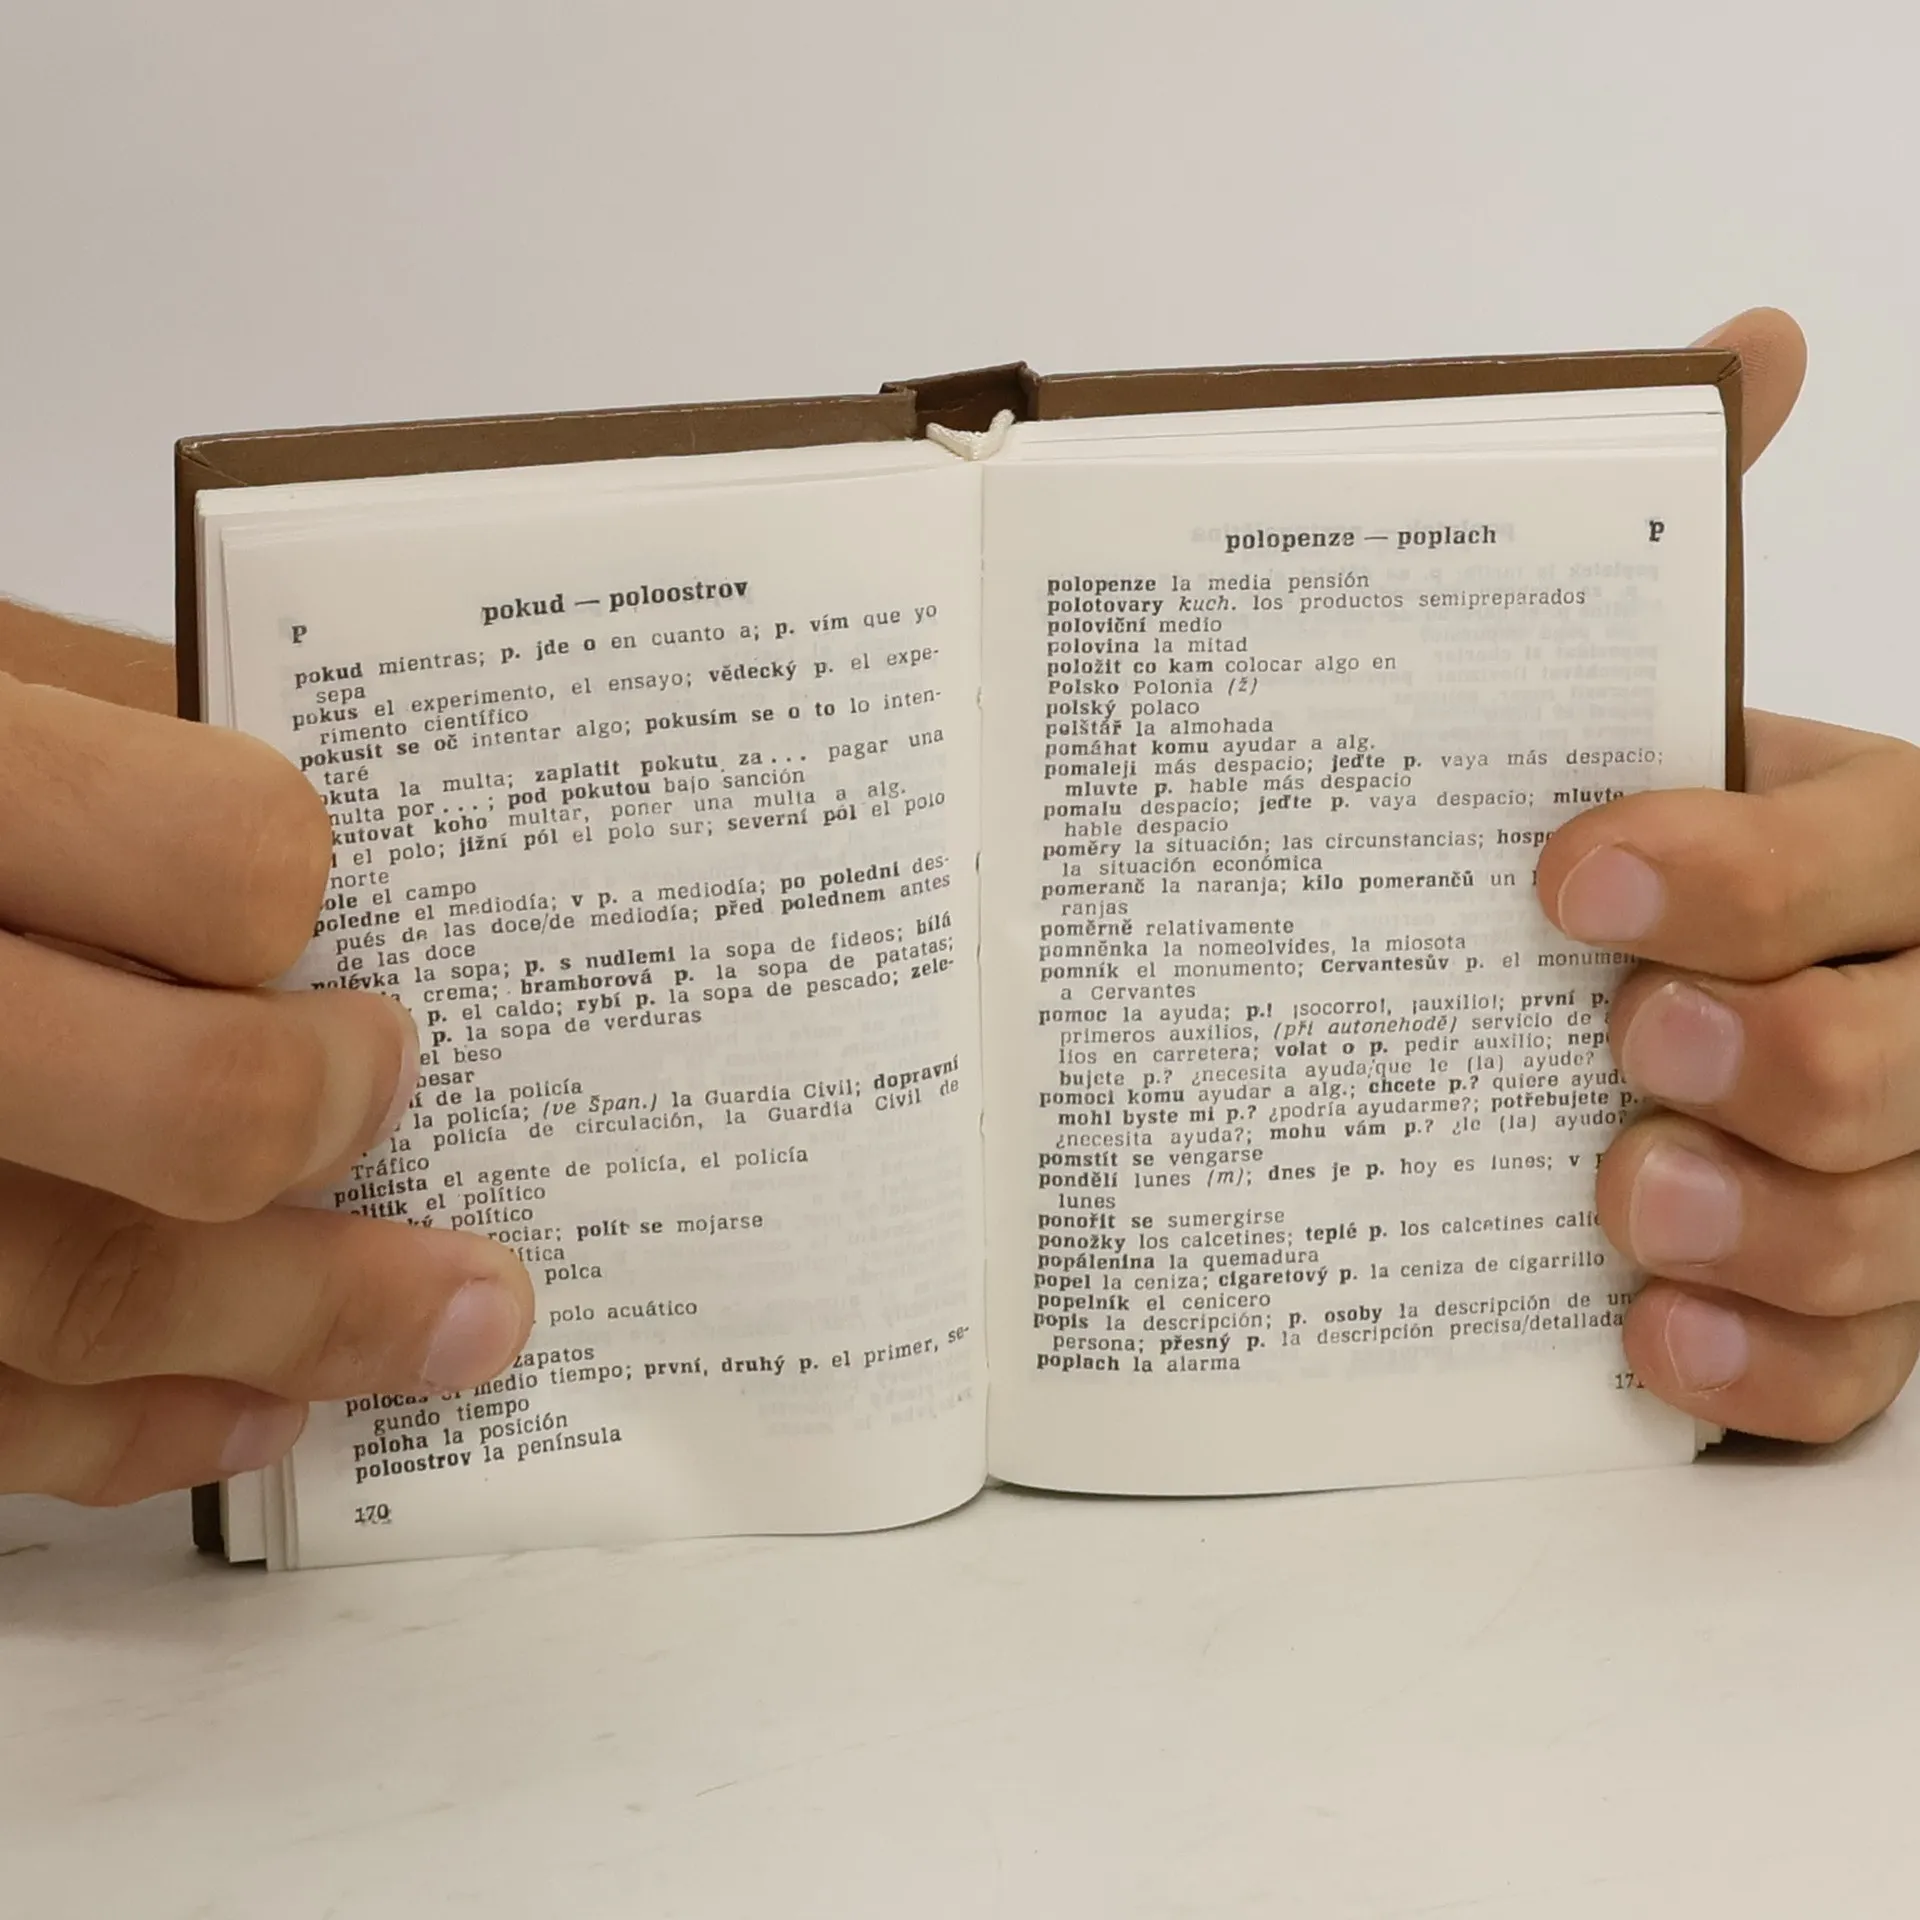 P
pokud — poloostrov
pokud mientras; p. jde o en cuanto a; p. vím que yo
sepa
pokus el experimento, el ensayo; vědecký p. el expe-
rimento científico
pokusit se oč intentar algo; pokusím se o to lo inten-
taré
la multa; zaplatit pokutu za... pagar una
por...; pod pokutou bajo sanción
koho multar, poner una multa a alg.
el polo; jižní pól el polo sur; severní pól el polo
norte
el campo
poledne el mediodía; v p. a mediodía; po poledni des-
pués de las doce/de mediodía; před polednem antes
de las doce
la sopa; p. s nudlemi la sopa de fideos; bílá
crema; bramborová p. la sopa de patatas;
p. el caldo; rybí p. la sopa de pescado; zele-
p. la sopa de verduras
el beso
besar
de la policía
la policía; (ve Špan.) la Guardia Civil; dopravní
la policía de circulación, la Guardia Civil de
Tráfico
policista el agente de policía, el policía
el político
político
rociar; polít se mojarse
polca
polo acuático
zapatos
medio tiempo; první, druhý p. el primer, se-
gundo tiempo
poloha la posición
poloostrov la península
170
polopenze — poplach P
polopenze la media pensión
polotovary kuch. los productos semipreparados
poloviční medio
polovina la mitad
položit co kam colocar algo en
Polsko Polonia (ž)
polský polaco
polštář la almohada
pomáhat komu ayudar a alg.
pomaleji más despacio; jeďte p. vaya más despacio;
mluvte p. hable más despacio
pomalu despacio; jeďte p. vaya despacio; mluvte
hable despacio
poměry la situación; las circunstancias;
la situación económica
pomeranč la naranja; kilo pomerančů un
ranjas
poměrně relativamente
pomněnka la nomeolvides, la miosota
pomník el monumento; Cervantesův p. el
a Cervantes
pomoc la ayuda; p.! ¡socorro!, ¡auxilio!; první p.
primeros auxilios, (při autonehodě) servicio de
lios en carretera; volat o p. pedir auxilio;
bujete p.? ¿necesita ayuda/que le (la) ayude?
pomoci komu ayudar a alg.; chcete p.? quiere
mohl byste mi p.? ¿podría ayudarme?; potřebujete p.
¿necesita ayuda?; mohu vám p.? ¿le (la) ayudo?
pomstít se vengarse
pondělí lunes (m); dnes je p. hoy es lunes; v
lunes
ponořit se sumergirse
ponožky los calcetines; teplé p. los calcetines
popálenina la quemadura
popel la ceniza; cigaretový p. la ceniza de cigarrillo
popelník el cenicero
popis la descripción; p. osoby la descripción de
persona; přesný p. la descripción precisa/detallada
poplach la alarma